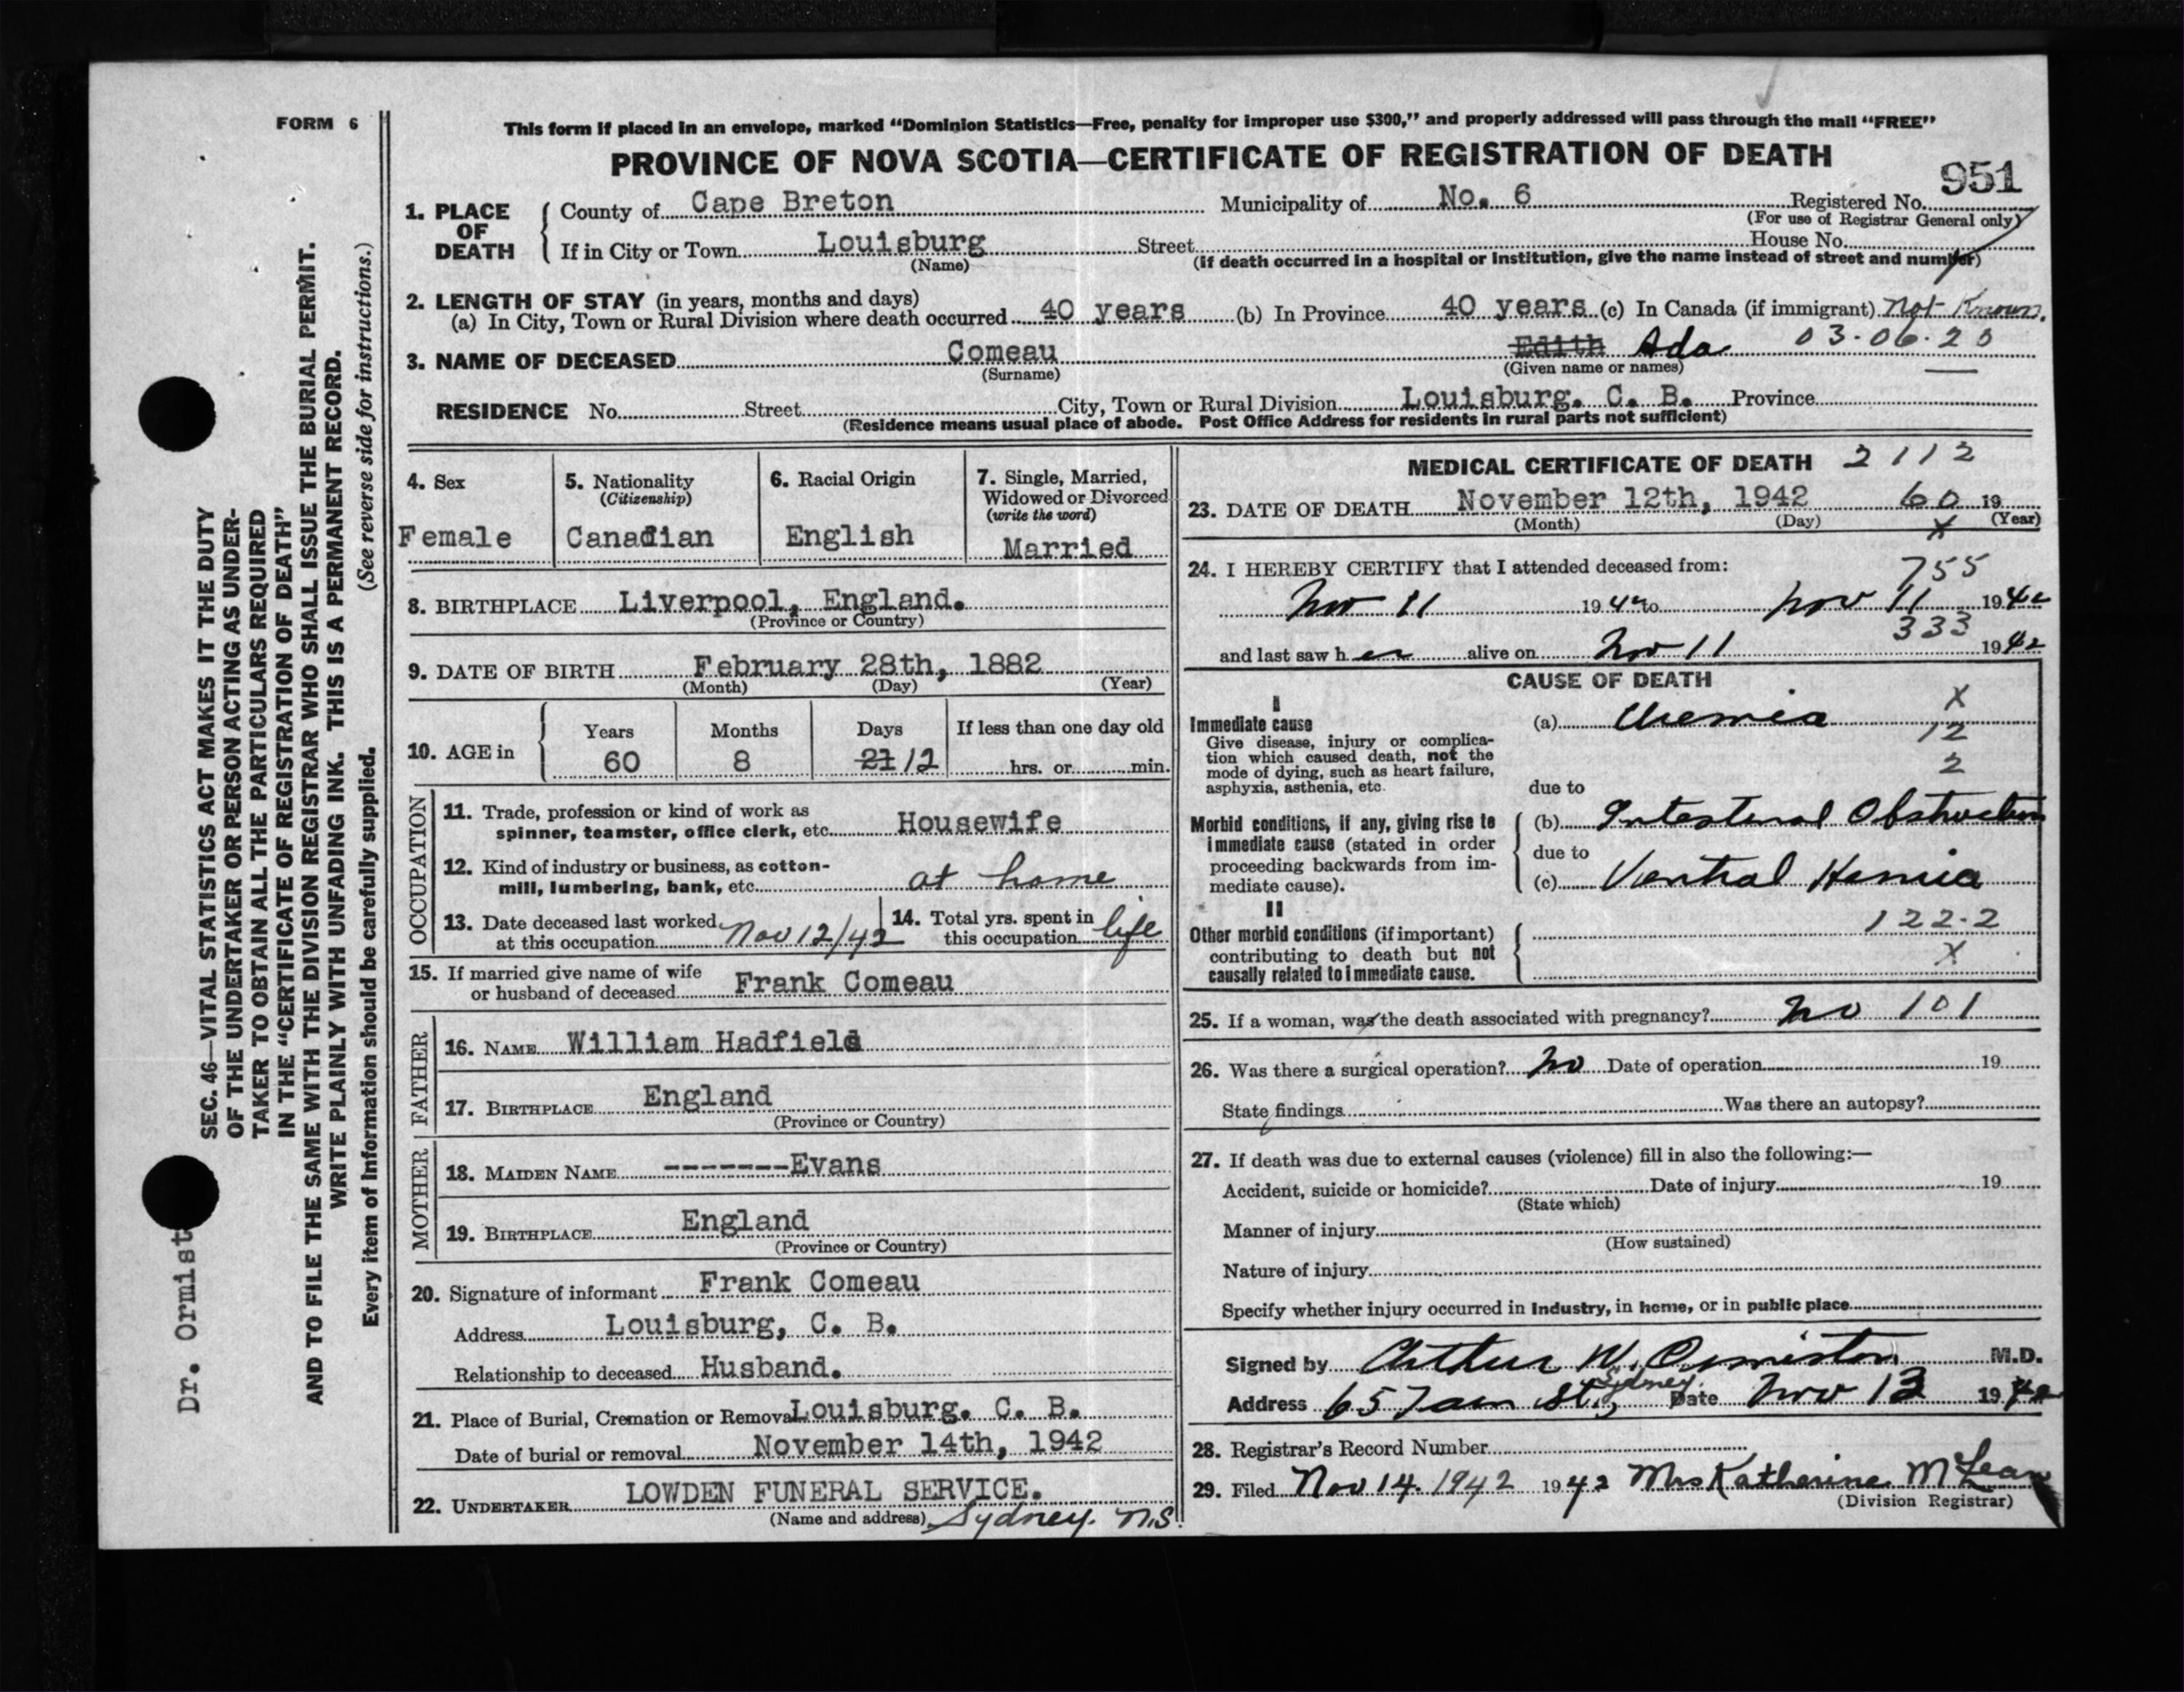 FORM 6
This form if placed in an envelope, marked "Dominion Statistics—Free, penalty for improper use $300," and properly addressed will pass through the mail "FREE"
PROVINCE OF NOVA SCOTIA—CERTIFICATE OF REGISTRATION OF DEATH
951
1. PLACE OF DEATH County of Cape Breton Municipality of No. 6 Registered No.
(For use of Registrar General only)
If in City or Town Louisburg Street House No.
(Name) (if death occurred in a hospital or institution, give the name instead of street and number)
2. LENGTH OF STAY (in years, months and days)
(a) In City, Town or Rural Division where death occurred 40 years (b) In Province 40 years (c) In Canada (if immigrant) Not Known.
3. NAME OF DECEASED Comeau Edith Ada 03-06-20
(Surname) (Given name or names)
RESIDENCE No. Street City, Town or Rural Division Louisburg. C. B. Province
(Residence means usual place of abode. Post Office Address for residents in rural parts not sufficient)
4. Sex
Female
5. Nationality
(Citizenship)
Canadian
6. Racial Origin
English
7. Single, Married,
Widowed or Divorced
(write the word)
Married
8. BIRTHPLACE Liverpool, England.
(Province or Country)
9. DATE OF BIRTH February 28th, 1882
(Month) (Day) (Year)
10. AGE in
Years Months Days If less than one day old
60 8 21 12 hrs. or min.
OCCUPATION
11. Trade, profession or kind of work as
spinner, teamster, office clerk, etc. Housewife
12. Kind of industry or business, as cotton-
mill, lumbering, bank, etc. at home
13. Date deceased last worked
at this occupation Nov 12/42
14. Total yrs. spent in
this occupation life
15. If married give name of wife
or husband of deceased Frank Comeau
FATHER
16. NAME William Hadfield
17. BIRTHPLACE England
(Province or Country)
MOTHER
18. MAIDEN NAME -------Evans
19. BIRTHPLACE England
(Province or Country)
20. Signature of informant Frank Comeau
Address Louisburg, C. B.
Relationship to deceased Husband.
21. Place of Burial, Cremation or Removal Louisburg. C. B.
Date of burial or removal November 14th, 1942
22. UNDERTAKER LOWDEN FUNERAL SERVICE.
(Name and address) Sydney. N.S.
MEDICAL CERTIFICATE OF DEATH 2112
23. DATE OF DEATH November 12th, 1942 60 19
(Month) (Day) X (Year)
24. I HEREBY CERTIFY that I attended deceased from: 755
Nov 11 1942 to Nov 11 1942
333
and last saw her alive on Nov 11 1942
CAUSE OF DEATH
I
Immediate cause
Give disease, injury or complica-
tion which caused death, not the
mode of dying, such as heart failure,
asphyxia, asthenia, etc.
X
(a) Uremia
12
2
due to
Morbid conditions, if any, giving rise to
immediate cause (stated in order
proceeding backwards from im-
mediate cause).
(b) Intestinal Obstruction
due to
(c) Ventral Hernia
II
Other morbid conditions (if important)
contributing to death but not
causally related to immediate cause.
122-2
X
25. If a woman, was the death associated with pregnancy? No 101
26. Was there a surgical operation? No Date of operation 19
State findings Was there an autopsy?
27. If death was due to external causes (violence) fill in also the following:—
Accident, suicide or homicide? Date of injury 19
(State which)
Manner of injury
(How sustained)
Nature of injury
Specify whether injury occurred in industry, in home, or in public place
Signed by Arthur W. Ormiston M.D.
Address 65 St., Sydney. Date Nov 13 1942
28. Registrar's Record Number
29. Filed Nov 14. 1942 1942 Mrs Katherine McLean
(Division Registrar)
SEC. 46—VITAL STATISTICS ACT MAKES IT THE DUTY
OF THE UNDERTAKER OR PERSON ACTING AS UNDER-
TAKER TO OBTAIN ALL THE PARTICULARS REQUIRED
IN THE "CERTIFICATE OF REGISTRATION OF DEATH"
AND TO FILE THE SAME WITH THE DIVISION REGISTRAR WHO SHALL ISSUE THE BURIAL PERMIT.
WRITE PLAINLY WITH UNFADING INK. THIS IS A PERMANENT RECORD.
Every item of information should be carefully supplied. (See reverse side for instructions.)
Dr. Ormist